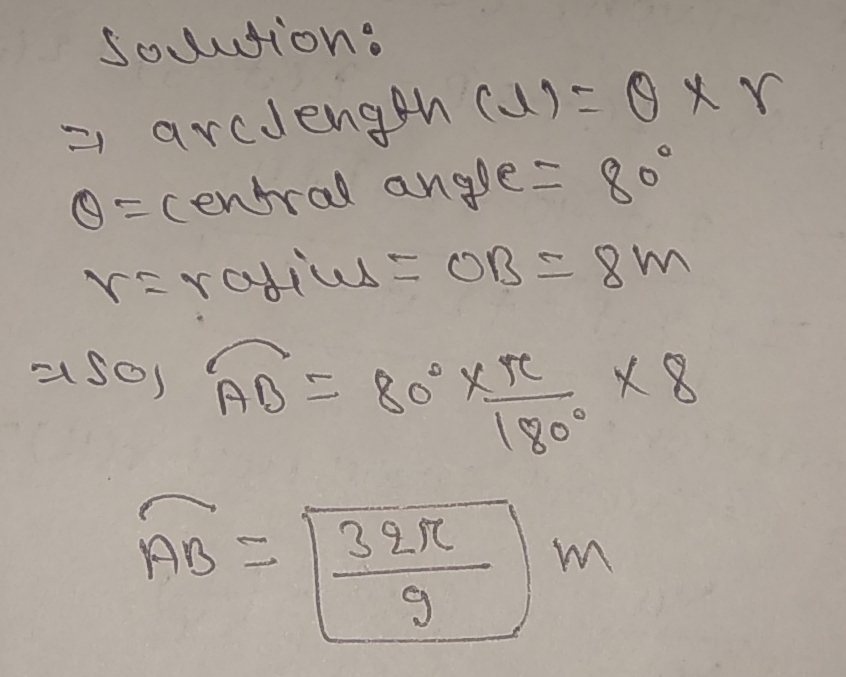 Solution:
⇒ arc length (l) = θ × r
θ = central angle = 80°
r = radius = OB = 8m
⇒ So, A͡B = 80° × π/180° × 8
A͡B = 32π/9 m